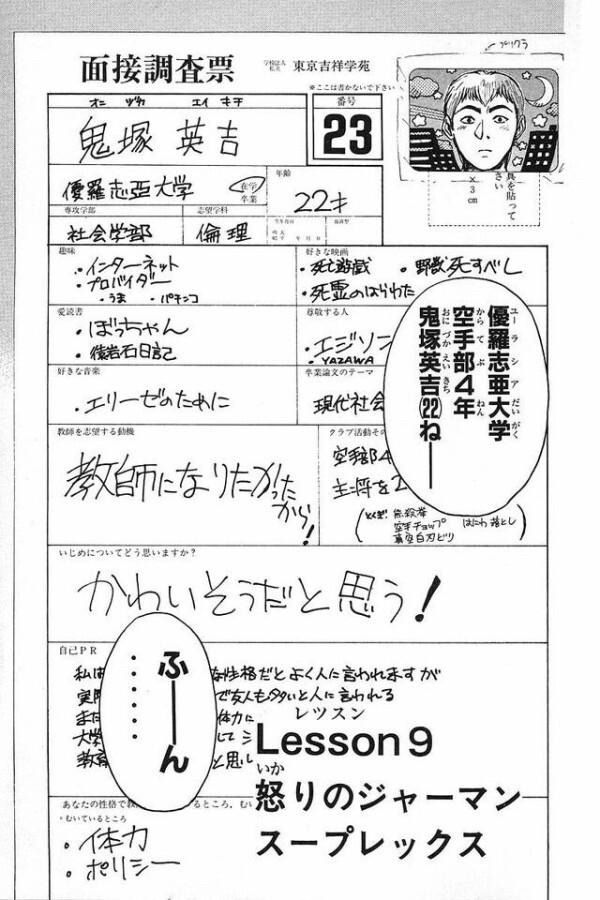 プリクラ
面接調査票
学校法人
私立
東京吉祥学苑
※ここは書かないで下さい
オニ ヅカ エイ キチ
鬼塚 英吉
番号
23
優羅志亜大学
在学
卒業
年齢
22才
真を貼って
さい
×3cm
専攻学部
社会学部
志望学科
倫理
趣味
・インターネット
・プロバイダー
・うま ・パチンコ
好きな映画
・死亡遊戯 ・野獣死すべし
・死霊のはらわた
愛読書
・ぼっちゃん
・猿岩石日記
尊敬する人
・エジソン
・YAZAWA
好きな音楽
・エリーゼのために
卒業論文のテーマ
現代社会
優羅志亜大学
ユーラシアだいがく
空手部4年
からてぶ ねん
鬼塚英吉(22)ねー
おにづかえいきち
教師を志望する動機
教師になりたかった
から!
クラブ活動その
空手部4
主将を
とくぎ
空手チョップ はにわ落とし
真空白刃どり
いじめについてどう思いますか?
かわいそうだと思う!
自己PR
私は
な性格だとよく人に言われますが
実際
で友人も多いと人に言われる
また
体力に
大学
して
教育
と思い
ふーん
・・・・・・
レッスン
Lesson 9
いか
怒りのジャーマン
スープレックス
あなたの性格で教
いるところ、むい
・むいているところ
・体力
・ポリシー